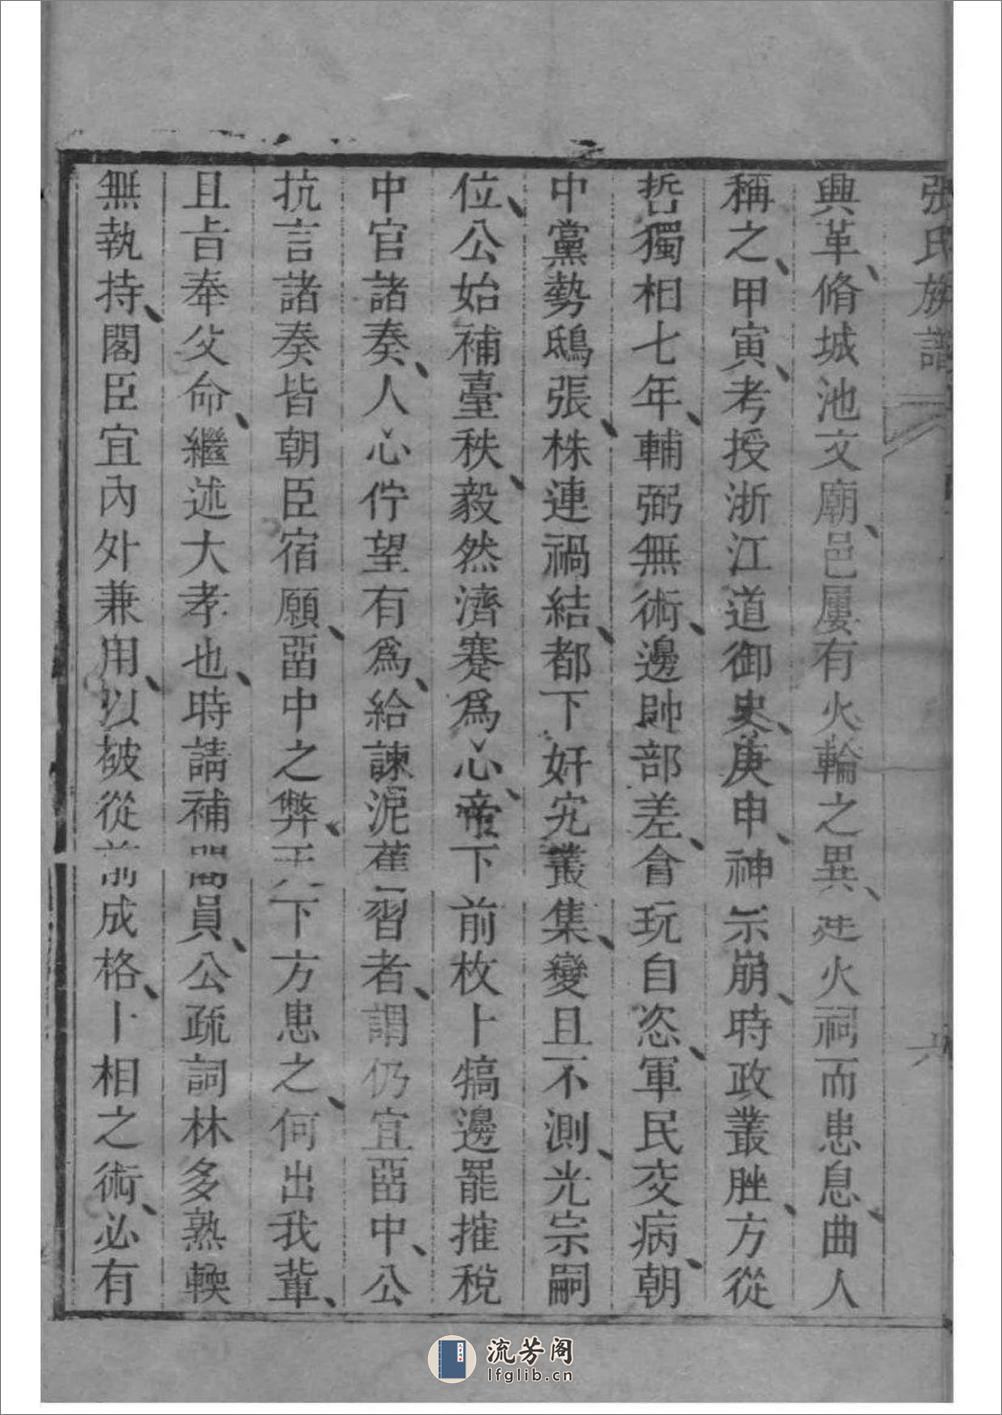 張氏族譜
六
興革、脩城池文廟、邑屢有火輪之異、建火祠而患息、曲人
稱之、甲寅、考授浙江道御史、庚申、神宗崩、時政叢脞、方從
哲獨相七年、輔弼無術、邊帥部差、會玩自恣、軍民交病、朝
中黨勢鴟張、株連禍結、都下奸宄叢集、變且不測、光宗嗣
位、公始補臺秩、毅然濟蹇爲心、帝下前枚卜犒邊罷搉稅
中官諸奏、人心佇望有爲、給諫泥舊習者、謂仍宜畱中、公
抗言諸奏皆朝臣宿願、畱中之弊、天下方患之、何出我輩、
且㫖奉父命、繼述大孝也、時請補閣員、公疏詞林多熟輭
無執持、閣臣宜內外兼用、以破從前成格、卜相之術、必有
流芳阁
lfglib.cn